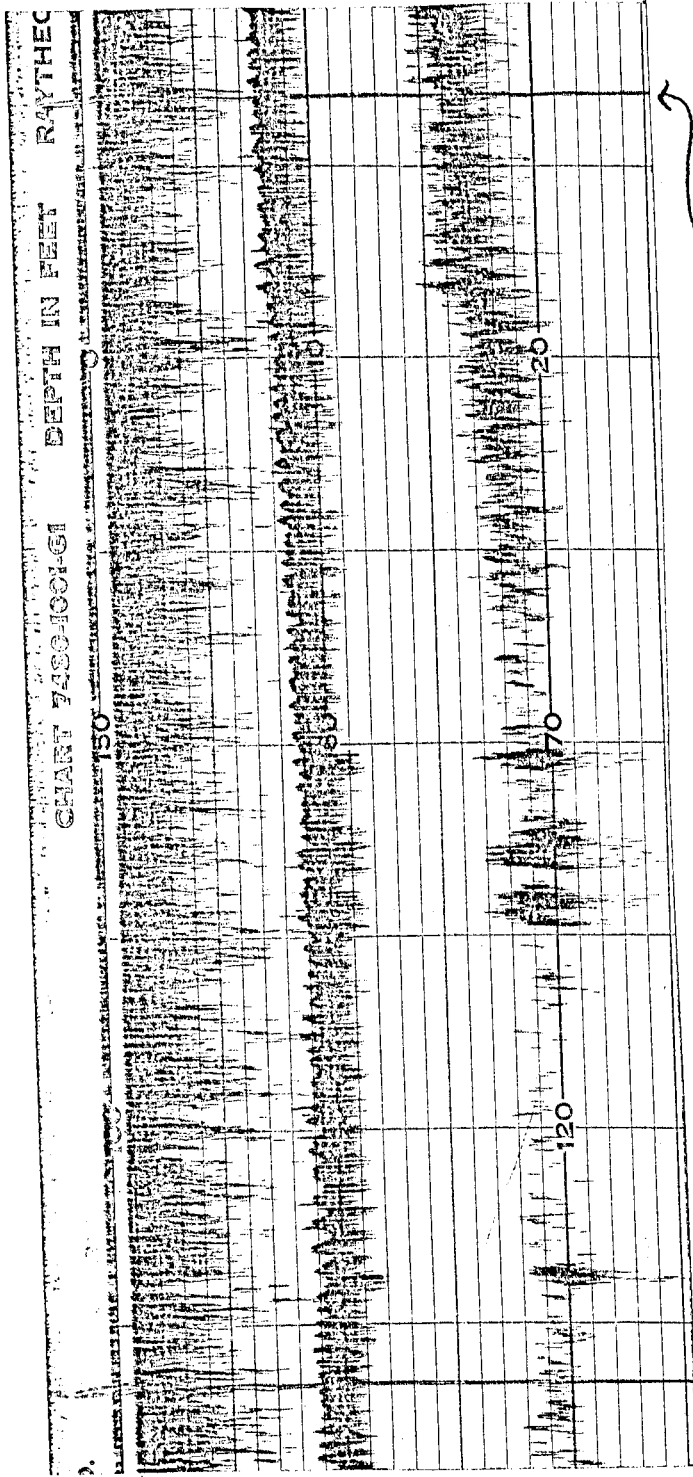 CHART 7490-1001-G1 DEPTH IN FEET RAYTHEO
0
10
20
150
60
70
100
120